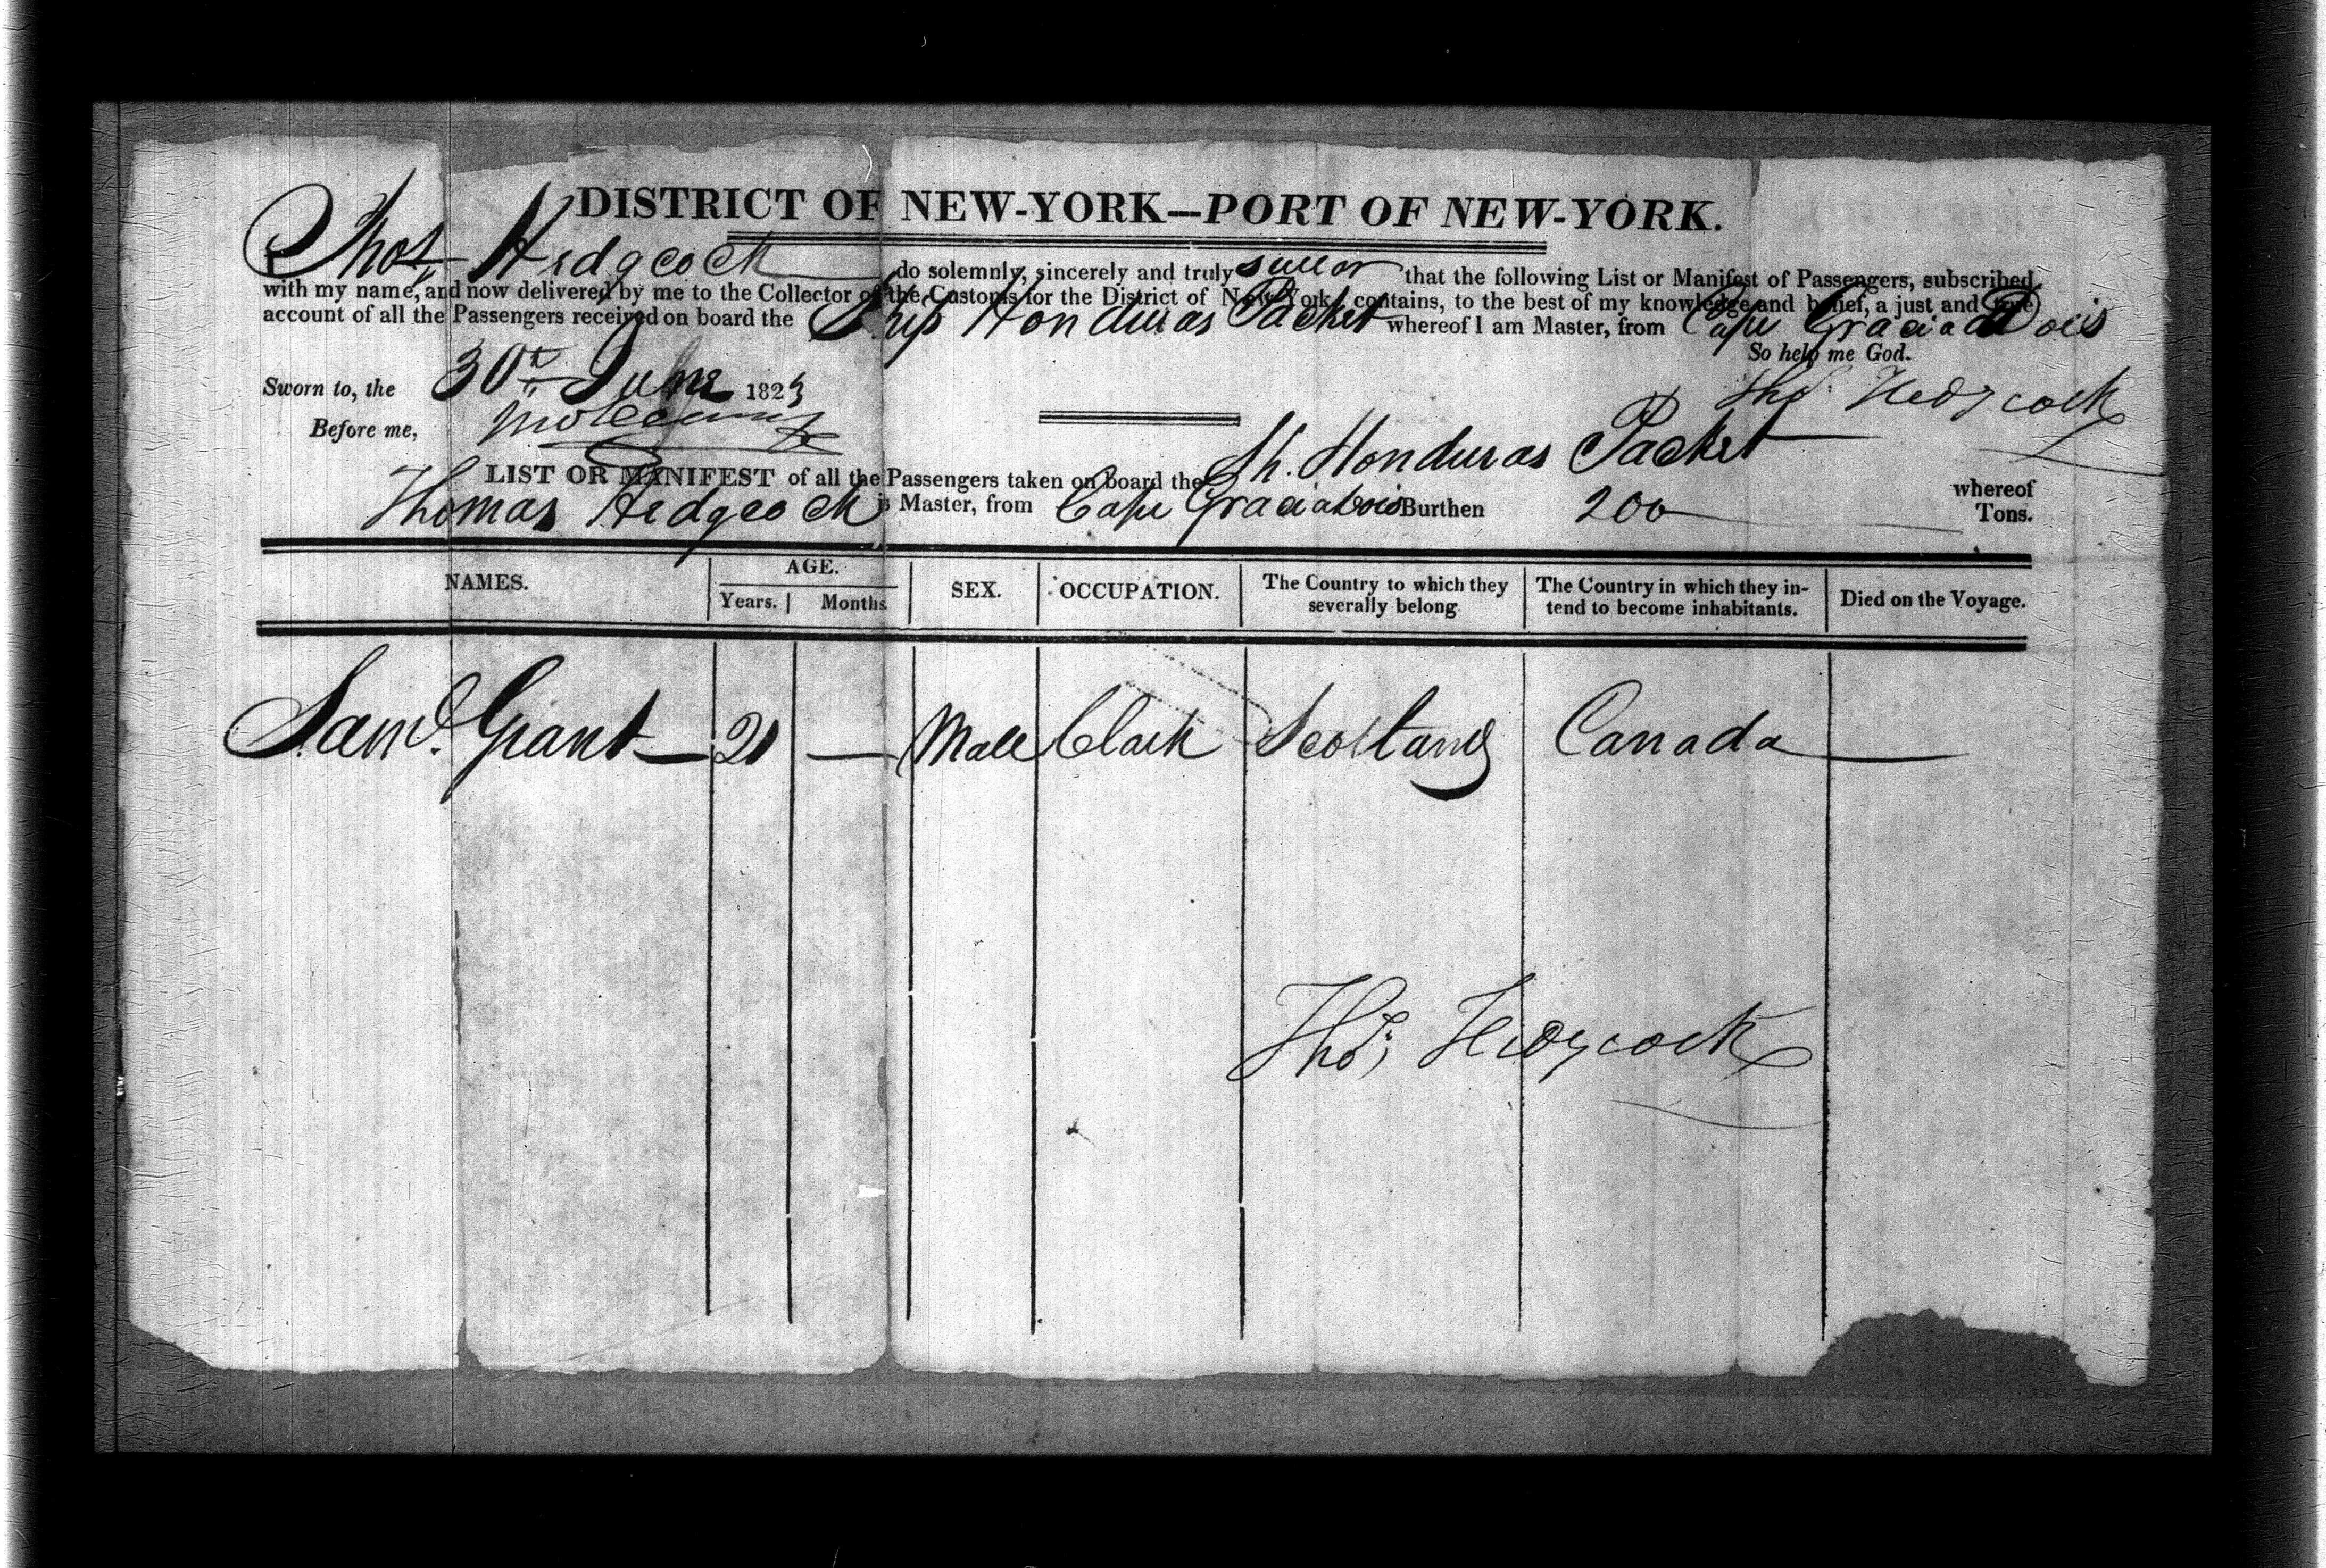 DISTRICT OF NEW-YORK—PORT OF NEW-YORK.
I Thos. Hedgcock do solemnly, sincerely and truly swear that the following List or Manifest of Passengers, subscribed
with my name, and now delivered by me to the Collector of the Customs for the District of New-York, contains, to the best of my knowledge and belief, a just and true
account of all the Passengers received on board the Ship Honduras Packet whereof I am Master, from Cape Gracia Dois
So help me God.
Sworn to, the 30th June 1823
Thos. Hedgcock
Before me,
LIST OR MANIFEST of all the Passengers taken on board the Sh. Honduras Packet whereof
Thomas Hedgcock is Master, from Cape Gracia Dois Burthen 200 Tons.
NAMES. AGE. SEX. OCCUPATION. The Country to which they severally belong The Country in which they in-tend to become inhabitants. Died on the Voyage.
Years. Months
Saml. Grant — 21 — Male Clark Scotland Canada —
Thos. Hedgcock